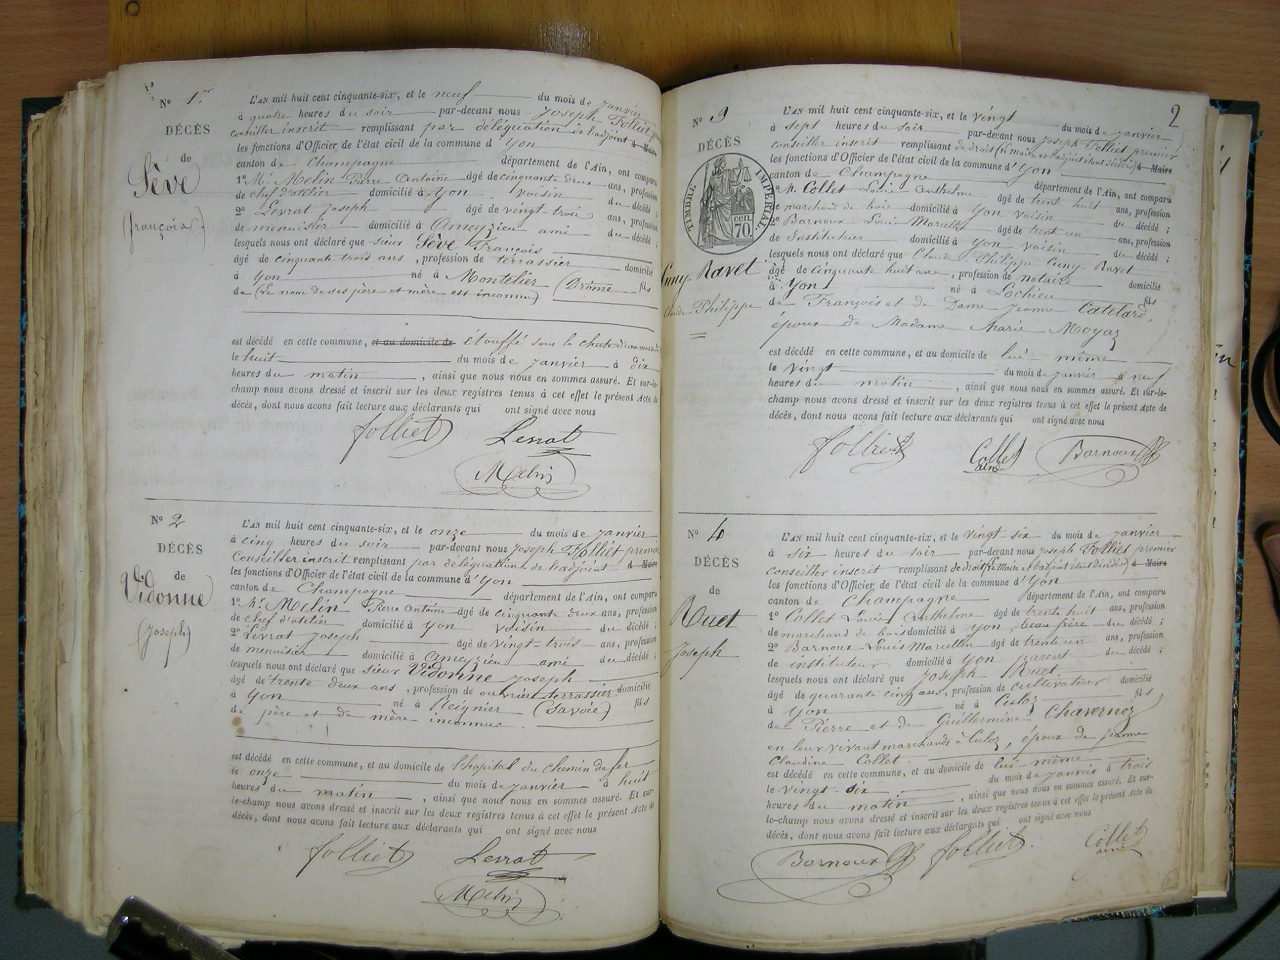 No 1er
DÉCÈS
de
Sève
(françois)
L'an mil huit cent cinquante-six, et le neuf du mois de janvier
à quatre heures du soir par-devant nous Joseph Folliet
conseiller inscrit remplissant par délégation de l'adjoint le Maire
les fonctions d'Officier de l'état civil de la commune d'Yon
canton de Champagne département de l'Ain, ont comparu
1º Mr Melin Pierre Antoine âgé de cinquante deux ans, profession
de chef d'atelier domicilié à Yon voisin du décédé ;
2º Levrat Joseph âgé de vingt trois ans, profession
de menuisier domicilié à Ameyzieu ami du décédé ;
lesquels nous ont déclaré que sieur Sève François
âgé de cinquante trois ans, profession de terrassier domicilié
à Yon né à Montelier (Drôme) fils
de (Le nom de ses père et mère est inconnu)
est décédé en cette commune, et au domicile de étouffé sous le
le huit du mois de janvier à dix
heures du matin, ainsi que nous nous en sommes assuré. Et sur-le-
champ nous avons dressé et inscrit sur les deux registres tenus à cet effet le présent Acte de
décès, dont nous avons fait lecture aux déclarants qui ont signé avec nous
Folliet Levrat
Melin
No 2
DÉCÈS
de
Vidonne
(Joseph)
L'an mil huit cent cinquante-six, et le onze du mois de janvier
à cinq heures du soir par-devant nous Joseph Folliet premier
Conseiller inscrit remplissant par délégation de l'adjoint le Maire
les fonctions d'Officier de l'état civil de la commune d'Yon
canton de Champagne département de l'Ain, ont comparu
1º Mr Melin Pierre Antoine âgé de cinquante deux ans, profession
de chef d'atelier domicilié à Yon voisin du décédé ;
2º Levrat Joseph âgé de vingt-trois ans, profession
de menuisier domicilié à Ameyzieu ami du décédé ;
lesquels nous ont déclaré que sieur Vidonne Joseph
âgé de trente deux ans, profession de ouvrier terrassier domicilié
à Yon né à Reignier (Savoie) fils
de père et de mère inconnus
est décédé en cette commune, et au domicile de l'hôpital du chemin de fer
le onze du mois de janvier à huit
heures du matin, ainsi que nous nous en sommes assuré. Et sur-
le-champ nous avons dressé et inscrit sur les deux registres tenus à cet effet le présent Acte de
décès, dont nous avons fait lecture aux déclarants qui ont signé avec nous
Folliet Levrat
Melin
2
No 3
DÉCÈS
TIMBRE IMPÉRIAL
70 cen.
Cuny Ravet
Claude Philippe
L'an mil huit cent cinquante-six, et le vingt du mois de janvier
à sept heures du soir par-devant nous Joseph Folliet premier
conseiller inscrit remplissant de droit le Maire
les fonctions d'Officier de l'état civil de la commune d'Yon
canton de Champagne département de l'Ain, ont comparu
1º M. Collet Louis Anthelme âgé de trente huit ans, profession
de marchand de bois domicilié à Yon voisin du décédé ;
2º Barnoux Louis Marcellin âgé de trente un ans, profession
de Instituteur domicilié à Yon voisin du décédé ;
lesquels nous ont déclaré que Claude Philippe Cuny Ravet
âgé de cinquante huit ans, profession de notaire domicilié
à Yon né à Lochieu fils
de François et de Dame Jeanne Catelard,
époux de Madame Marie Moyaz
est décédé en cette commune, et au domicile de lui même
le vingt du mois de janvier à neuf
heures du matin, ainsi que nous nous en sommes assuré. Et sur-le-
champ nous avons dressé et inscrit sur les deux registres tenus à cet effet le présent Acte de
décès, dont nous avons fait lecture aux déclarants qui ont signé avec nous
Folliet Collet Barnoux
ainé
No 4
DÉCÈS
de
Ruet
Joseph
L'an mil huit cent cinquante-six, et le vingt six du mois de janvier
à six heures du soir par-devant nous Joseph Folliet premier
conseiller inscrit remplissant de droit le Maire
les fonctions d'Officier de l'état civil de la commune d'Yon
canton de Champagne département de l'Ain, ont comparu
1º Collet Louis Anthelme âgé de trente huit ans, profession
de marchand de bois domicilié à Yon, beau frère du décédé ;
2º Barnoux Louis Marcellin âgé de trente un ans, profession
de instituteur domicilié à Yon parent du décédé ;
lesquels nous ont déclaré que Joseph Ruet
âgé de quarante cinq ans, profession de cultivateur domicilié
à Yon né à Culoz fils
de Pierre et de Guillermine Chavernoz
en leur vivant marchands à Culoz, époux de Jeanne
Claudine Collet
est décédé en cette commune, et au domicile de lui même
le vingt-six du mois de janvier à trois
heures du matin, ainsi que nous nous en sommes assuré. Et sur-
le-champ nous avons dressé et inscrit sur les deux registres tenus à cet effet le présent Acte de
décès, dont nous avons fait lecture aux déclarants qui ont signé avec nous
Barnoux Folliet Collet
ainé